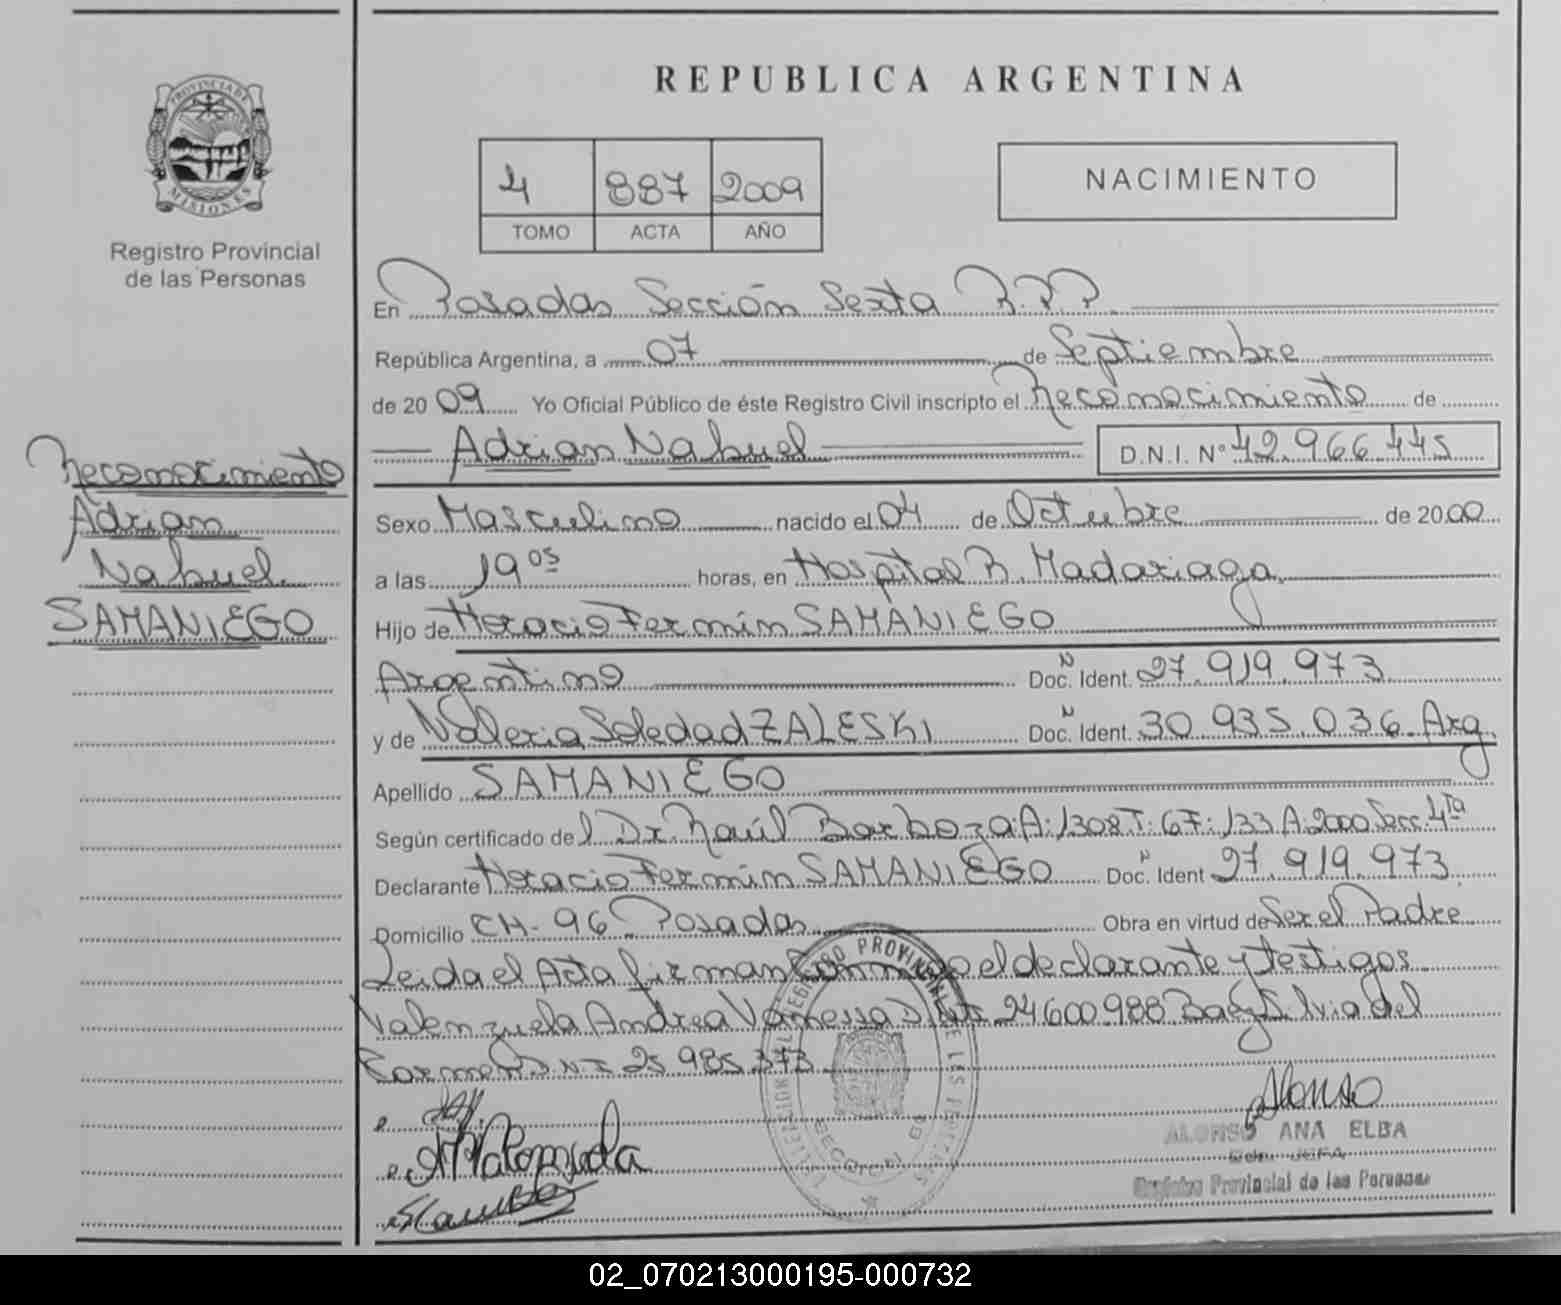 REPUBLICA ARGENTINA
PROVINCIA DE
MISIONES
Registro Provincial
de las Personas
4 887 2009
TOMO ACTA AÑO
NACIMIENTO
En Posadas Sección Sexta R.P.P.
República Argentina, a 07 de Septiembre
de 2009 Yo Oficial Público de éste Registro Civil inscripto el Reconocimiento de
Adrian Nahuel D.N.I. Nº 42.966.445
Reconocimiento
Adrian
Nahuel
SAMANIEGO
Sexo Masculino nacido el 04 de Octubre de 2000
a las 19 05 horas, en Hospital R. Madariaga
Hijo de Horacio Fermín SAMANIEGO
Argentino Doc. N Ident. 27.919.973
y de Valeria Soledad ZALESKI Doc. N Ident. 30.935.036. Arg.
Apellido SAMANIEGO
Según certificado del Dr. Raúl Barboza A: 1308 T: 6 F: 133 A. 2000 Secc. 4ta
Declarante Horacio Fermín SAMANIEGO Doc. N Ident 27.919.973
Domicilio CH- 96 Posadas Obra en virtud de Ser el Padre
Leida el Acta firman conmigo el declarante y testigos
Valenzuela Andrea Vanessa DNI 24600988 Baez Silvia del
Carmen DNI 25 985 373
Alonso
ALONSO ANA ELBA
JEFA
Registro Provincial de las Personas
02_070213000195-000732